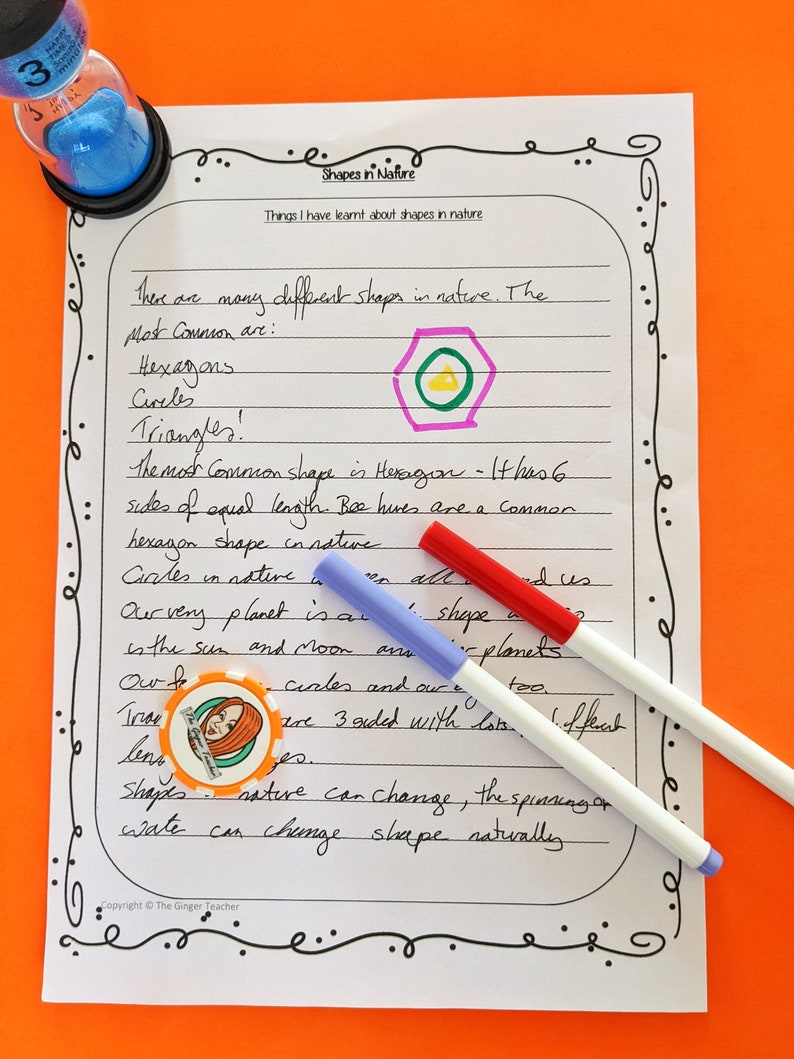 3
HAPPY
TIME?
minutes
Shapes in Nature
Things I have learnt about shapes in nature
There are many different shapes in nature. The
Most Common are:
Hexagons
Circles
Triangles!
The most Common shape is Hexagon - It has 6
sides of equal length. Bee hives are a common
hexagon shape in nature
Circles in nature all us
Our very planet is a shape
is the sun and Moon and planets
Our circles and our too.
are 3 sided with lots different
The Ginger Teacher
Shapes nature can change, the spinning or
water can change shape naturally
Copyright © The Ginger Teacher